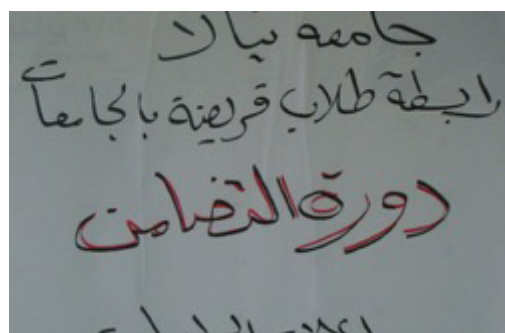 جامعة نيالا
رابطة طلاب قريضة بالجامعات
دورة التضامن